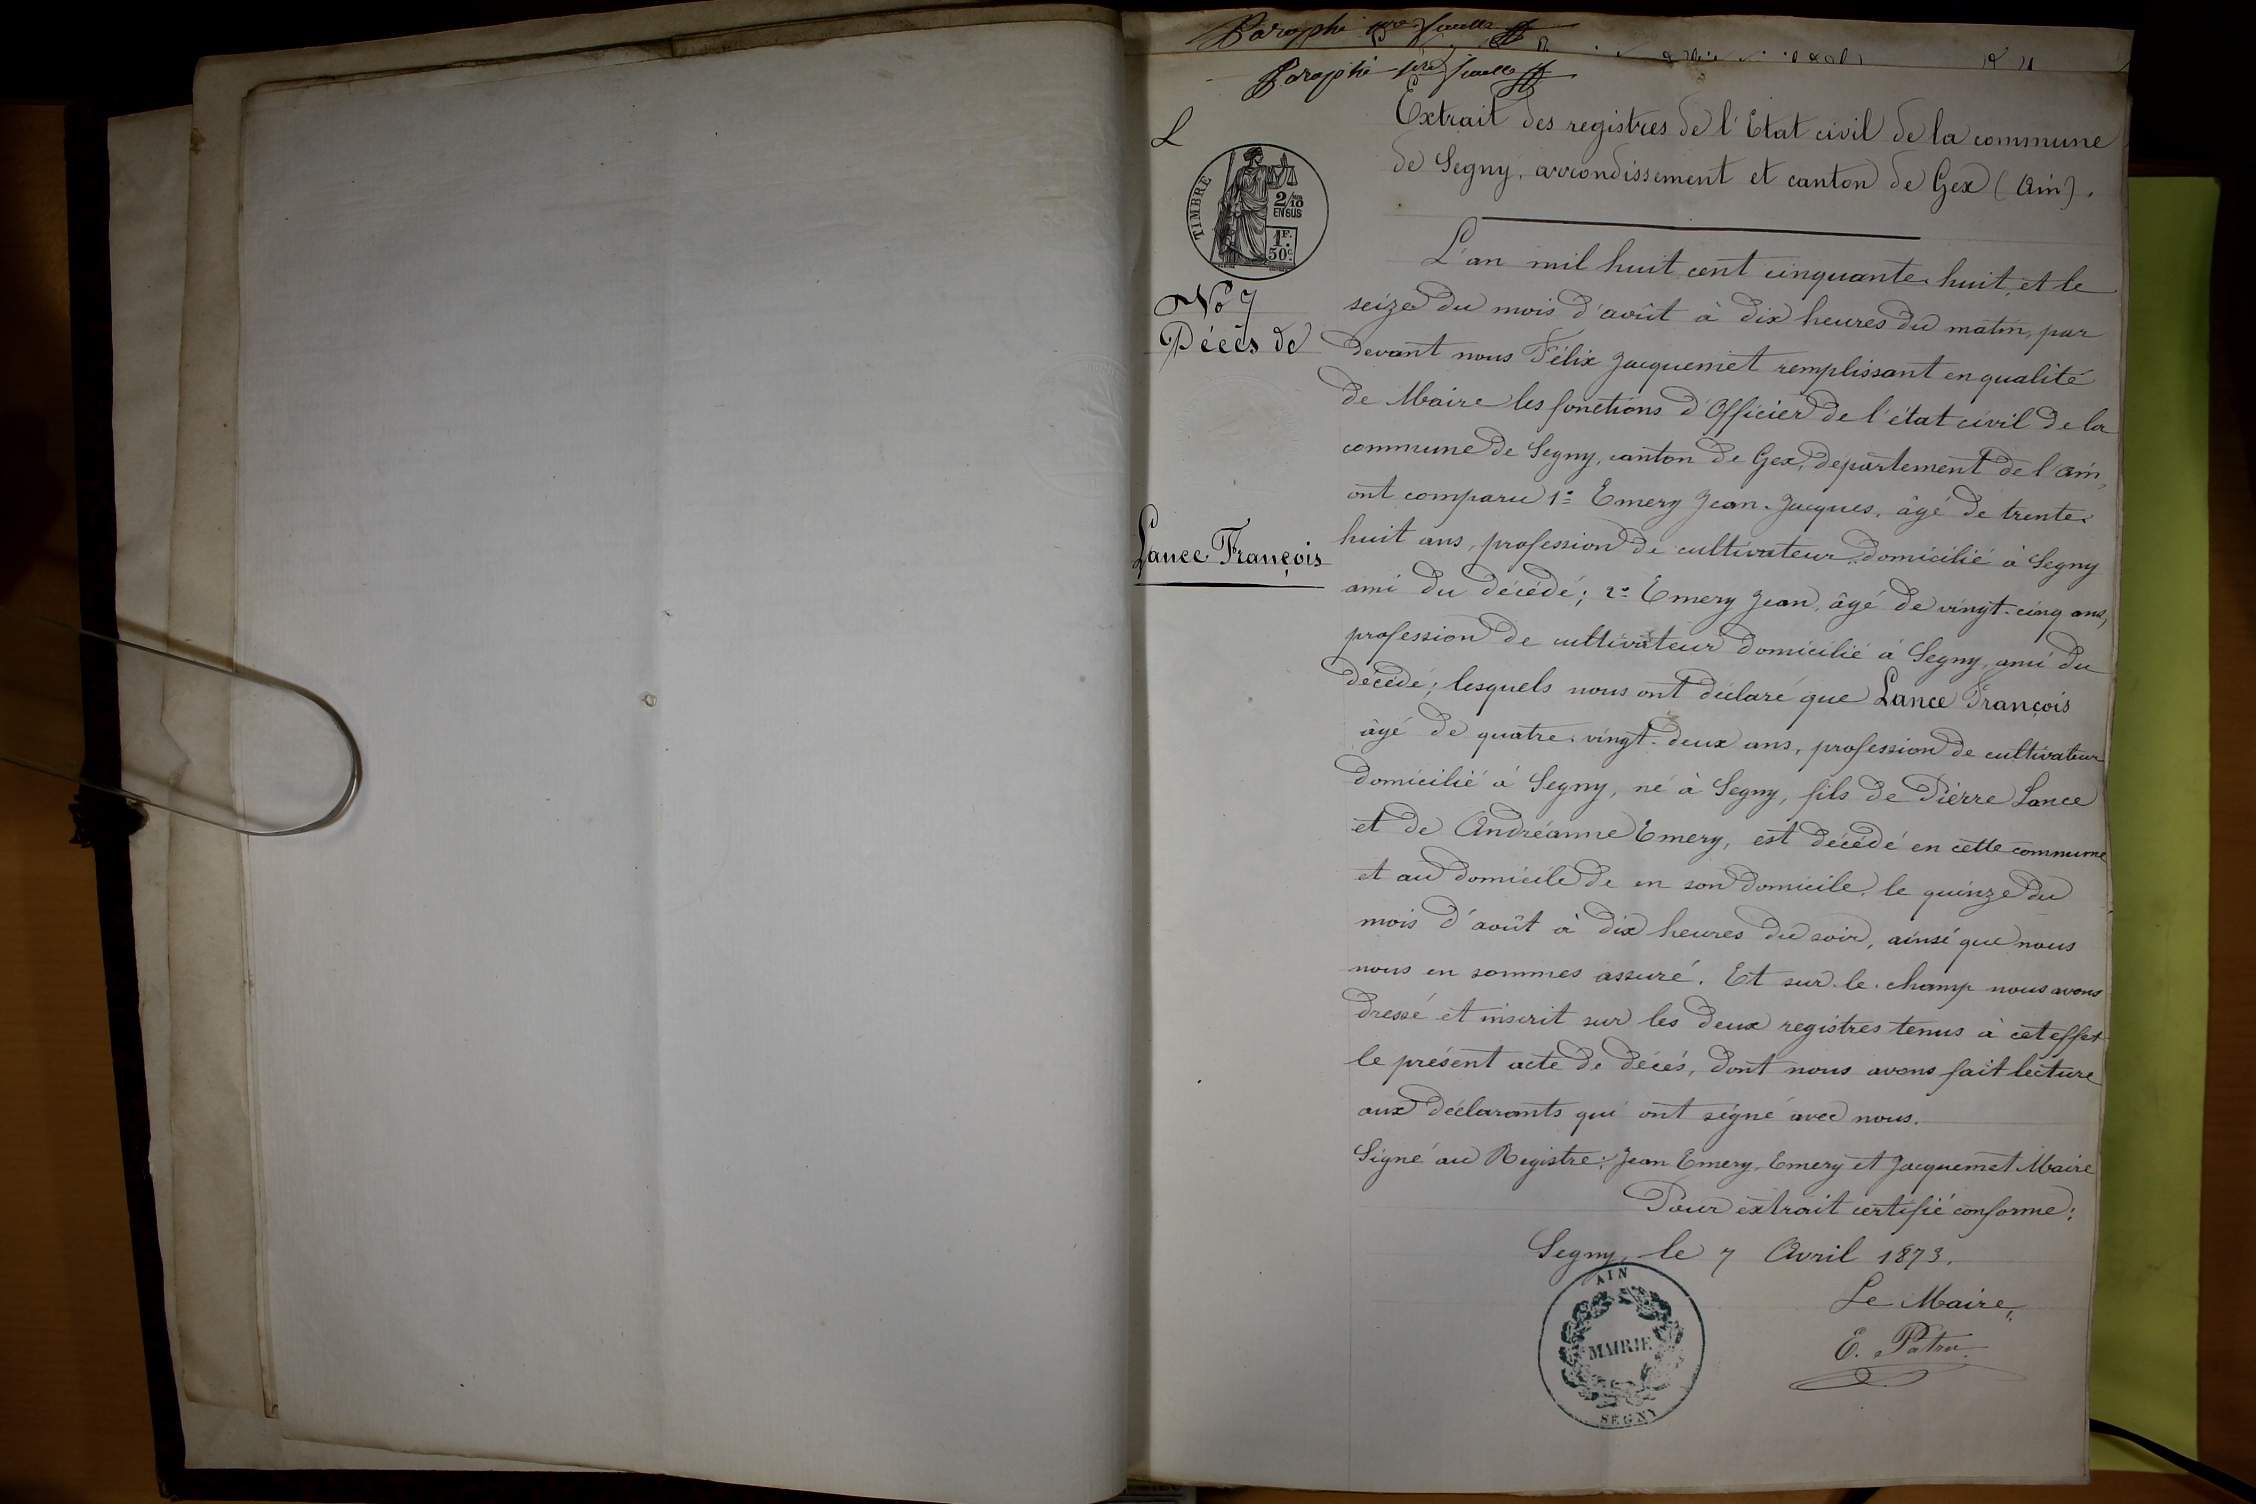 Paraphé
Paraphé
L
Extrait des registres de l'Etat civil de la commune
de Segny, arrondissement et canton de Gex (Ain).
TIMBRE
2/10
EN SUS
1F.
50c
No 7
Décès de
Lance François
L'an mil huit cent cinquante huit, et le
seize du mois d'août à dix heures du matin, par
devant nous Félix Jacquemet remplissant en qualité
de Maire les fonctions d'Officier de l'état civil de la
commune de Segny, canton de Gex, département de l'ain,
ont comparu 1º Emery Jean-Jacques, âgé de trente-
huit ans, profession de cultivateur domicilié à Segny
ami du décédé; 2º Emery Jean, âgé de vingt-cinq ans,
profession de cultivateur domicilié à Segny, ami du
décédé; lesquels nous ont déclaré que Lance François
âgé de quatre-vingt-deux ans, profession de cultivateur
domicilié à Segny, né à Segny, fils de Pierre Lance
et de Andréanne Emery, est décédé en cette commune
et au domicile de en son domicile, le quinze du
mois d'août à dix heures du soir, ainsi que nous
nous en sommes assuré. Et sur-le-champ nous avons
dressé et inscrit sur les deux registres tenus à cet effet
le présent acte de décés, dont nous avons fait lecture
aux déclarants qui ont signé avec nous.
Signé au Registre: Jean Emery, Emery et Jacquemet Maire
Pour extrait certifié conforme:
Segny, le 7 Avril 1873.
Le Maire,
E. Patru
AIN
MAIRIE
SEGNY